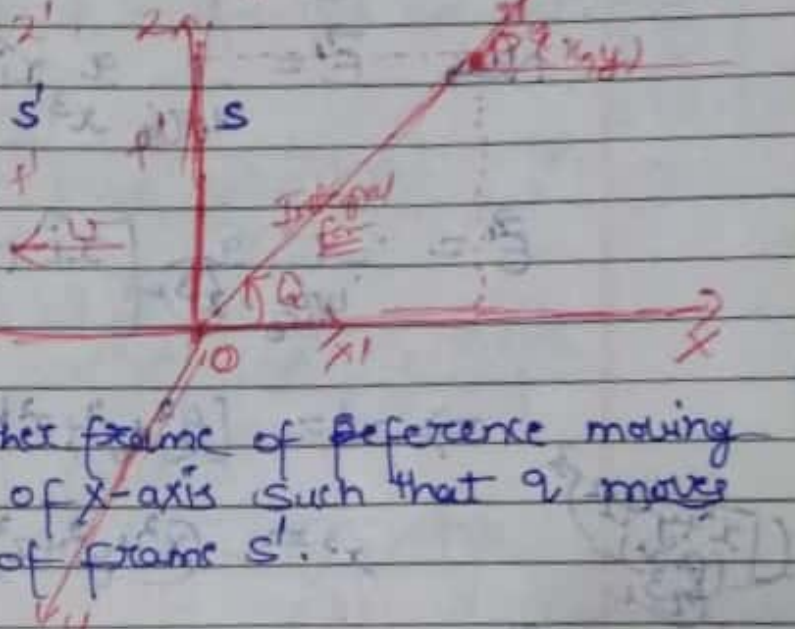 z' z
P (x,y)
S' S
p'
t'
U
Q
O x' X
her frame of Reference moving
of x-axis such that q moves
of frame S'.
y